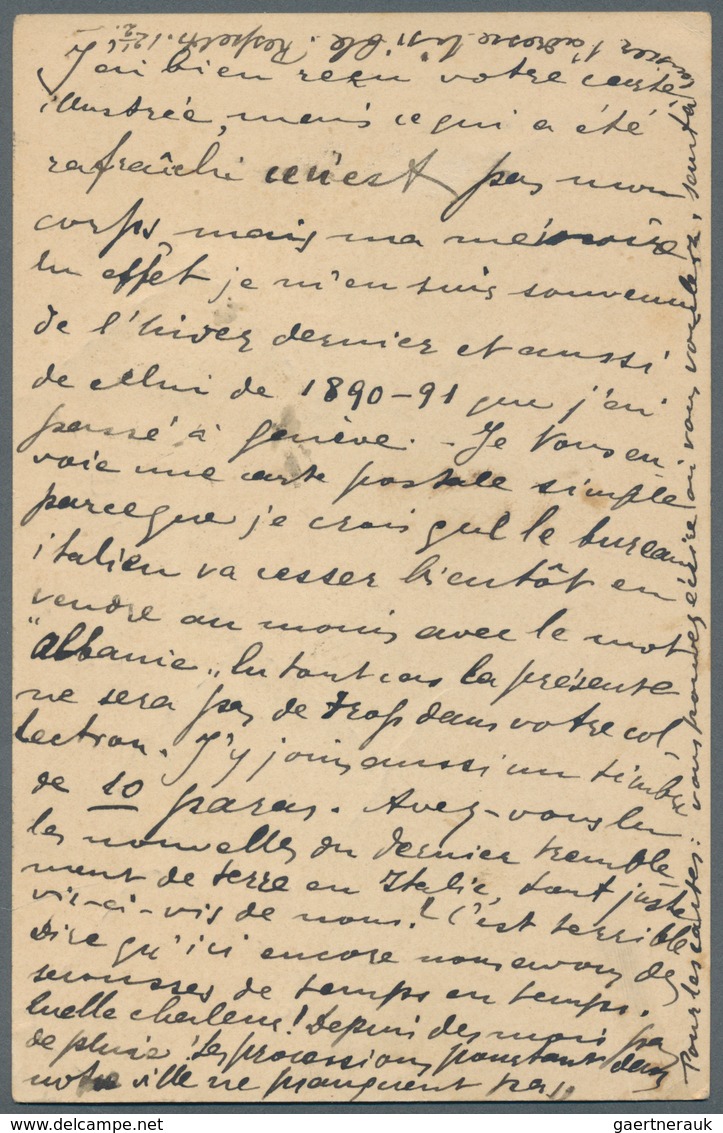 J'ai bien reçu votre carte
illustrée, mais ce qui a été
rafraîchi ce n'est pas mon
corps, mais ma mémoire
En effet je m'en suis souvenu
de l'hiver dernier et aussi
de celui de 1890-91 que j'ai
passé à Genève. - Je vous en
voie une carte postale simple
parceque je crois qul le bureau
italien va cesser bientôt en
vendre au moins avec le mot
"Albanie„ En tout cas la présente
ne sera pas de trop dans votre col
lection. J'y joins aussi un timbre
de 10 paras. Avez-vous lu
les nouvelles du dernier tremble
ment de terre en Italie, tout juste
vis-ci-vis de nous! C'est terrible
Dire qu'ici encore nous avons des
secousses de temps en temps.
Quelle chaleur! Depuis des mois pas
de pluie! Les processions pourtant dans
notre ville ne manquent pas.
Pour les cartes: vous pouvez écrire où vous voulez, sauf à
laisser l'adresse lisible. Respects.
gaertnerauk